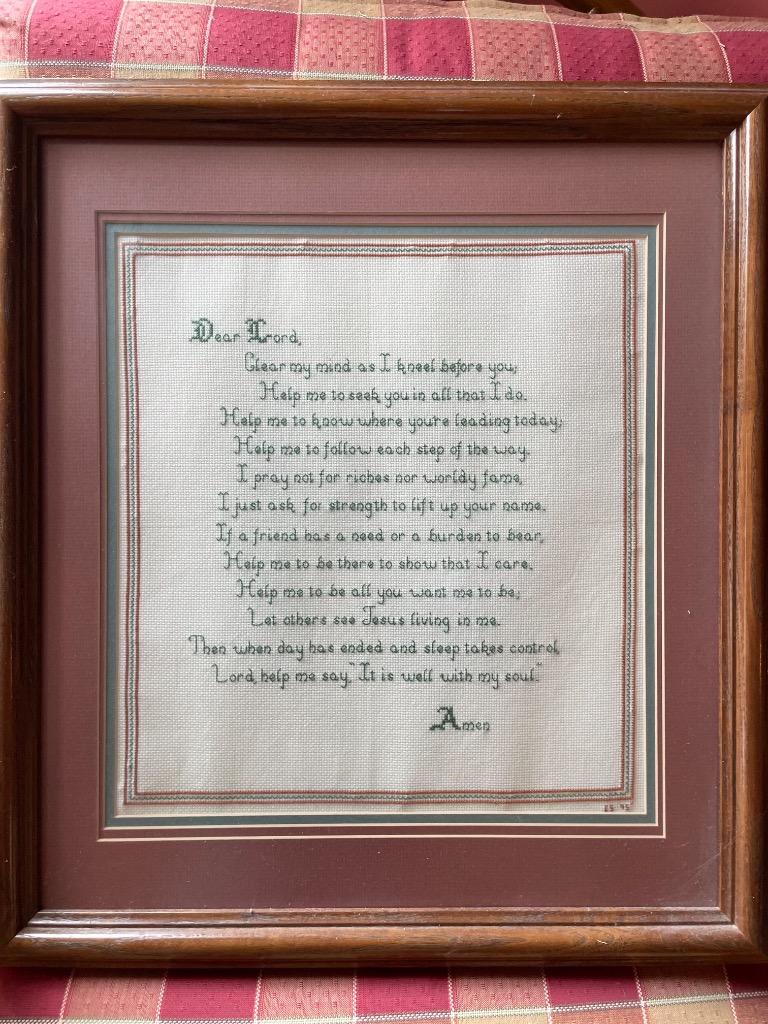 Dear Lord,
Clear my mind as I kneel before you;
Help me to seek you in all that I do.
Help me to know where you're leading today;
Help me to follow each step of the way.
I pray not for riches nor worldy fame,
I just ask for strength to lift up your name.
If a friend has a need or a burden to bear,
Help me to be there to show that I care.
Help me to be all you want me to be;
Let others see Jesus living in me.
Then when day has ended and sleep takes control,
Lord, help me say, "It is well with my soul."
Amen